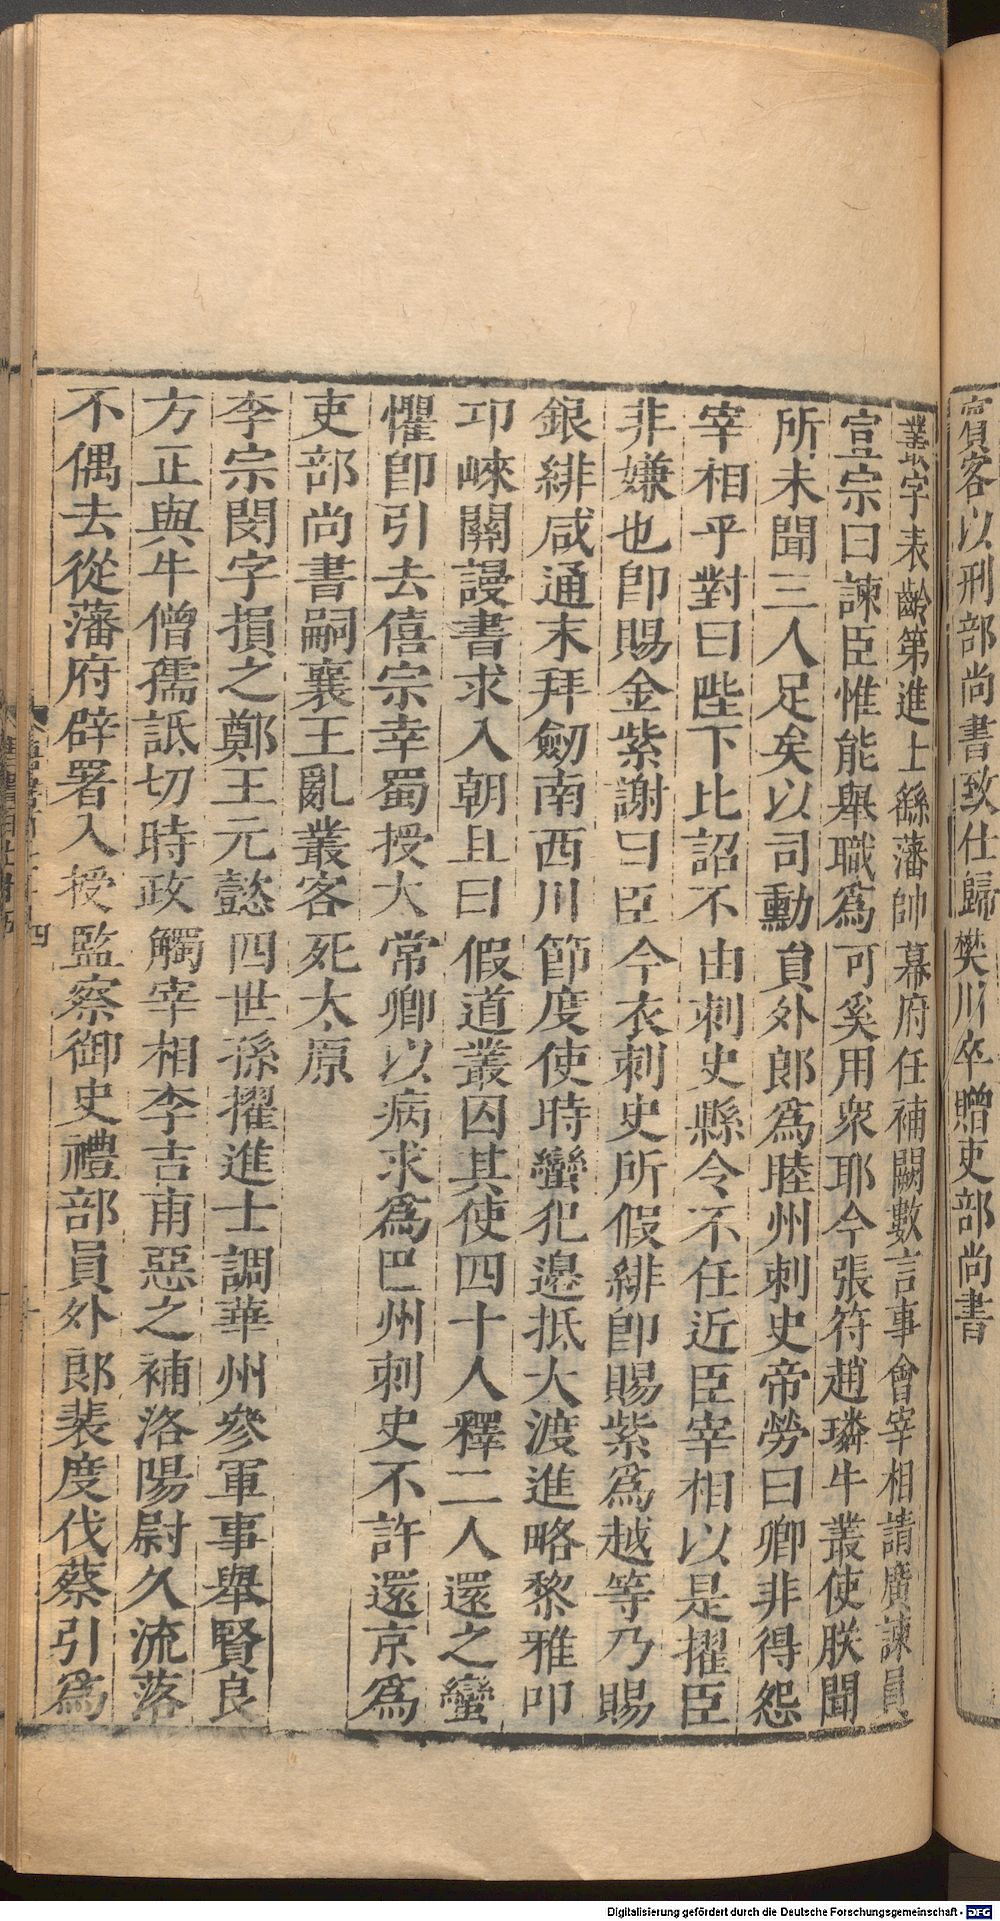 賓客以刑部尚書致仕歸樊川卒贈吏部尚書
叢字表齡第進士繇藩帥幕府任補闕數言事會宰相請廣諫員
宣宗曰諫臣惟能舉職爲可奚用衆耶今張符趙璘牛叢使朕聞
所未聞三人足矣以司勳員外郎爲睦州刺史帝勞曰卿非得怨
宰相乎對曰陛下比詔不由刺史縣令不任近臣宰相以是擢臣
非嫌也卽賜金紫謝曰臣今衣刺史所假緋卽賜紫爲越等乃賜
銀緋咸通末拜劒南西川節度使時蠻犯邊抵大渡進略黎雅叩
卭崍關謾書求入朝且曰假道叢囚其使四十人釋二人還之蠻
懼卽引去僖宗幸蜀授太常卿以病求爲巴州刺史不許還京爲
吏部尚書嗣襄王亂叢客死太原
李宗閔字損之鄭王元懿四世孫擢進士調華州參軍事舉賢良
方正與牛僧孺詆切時政觸宰相李吉甫惡之補洛陽尉久流落
不偶去從藩府辟署入授監察御史禮部員外郎裴度伐蔡引爲
Digitalisierung gefördert durch die Deutsche Forschungsgemeinschaft - DFG